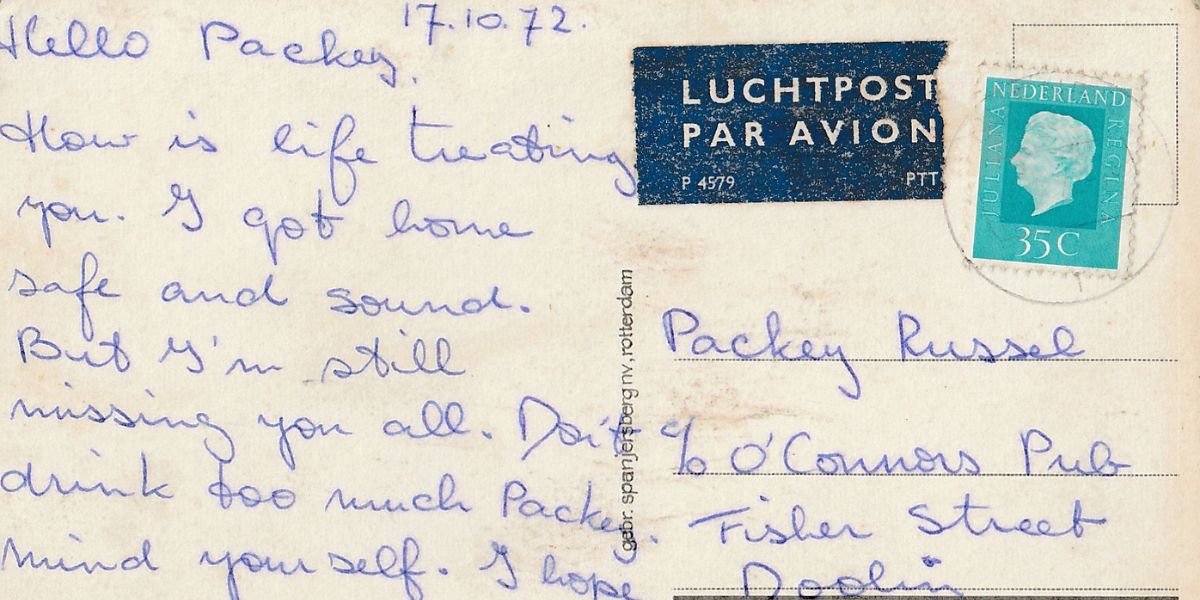 17.10.72.
Hello Packey.
How is life treating
you. I got home
safe and sound.
But I'm still
missing you all. Don't
drink too much Packey.
mind yourself. I hope
LUCHTPOST
PAR AVION
P 4579 PTT
NEDERLAND
JULIANA REGINA
35 C
gebr. spanjersberg nv, rotterdam
Packey Russel
c/o O'Connors Pub
Fisher Street
Doolin